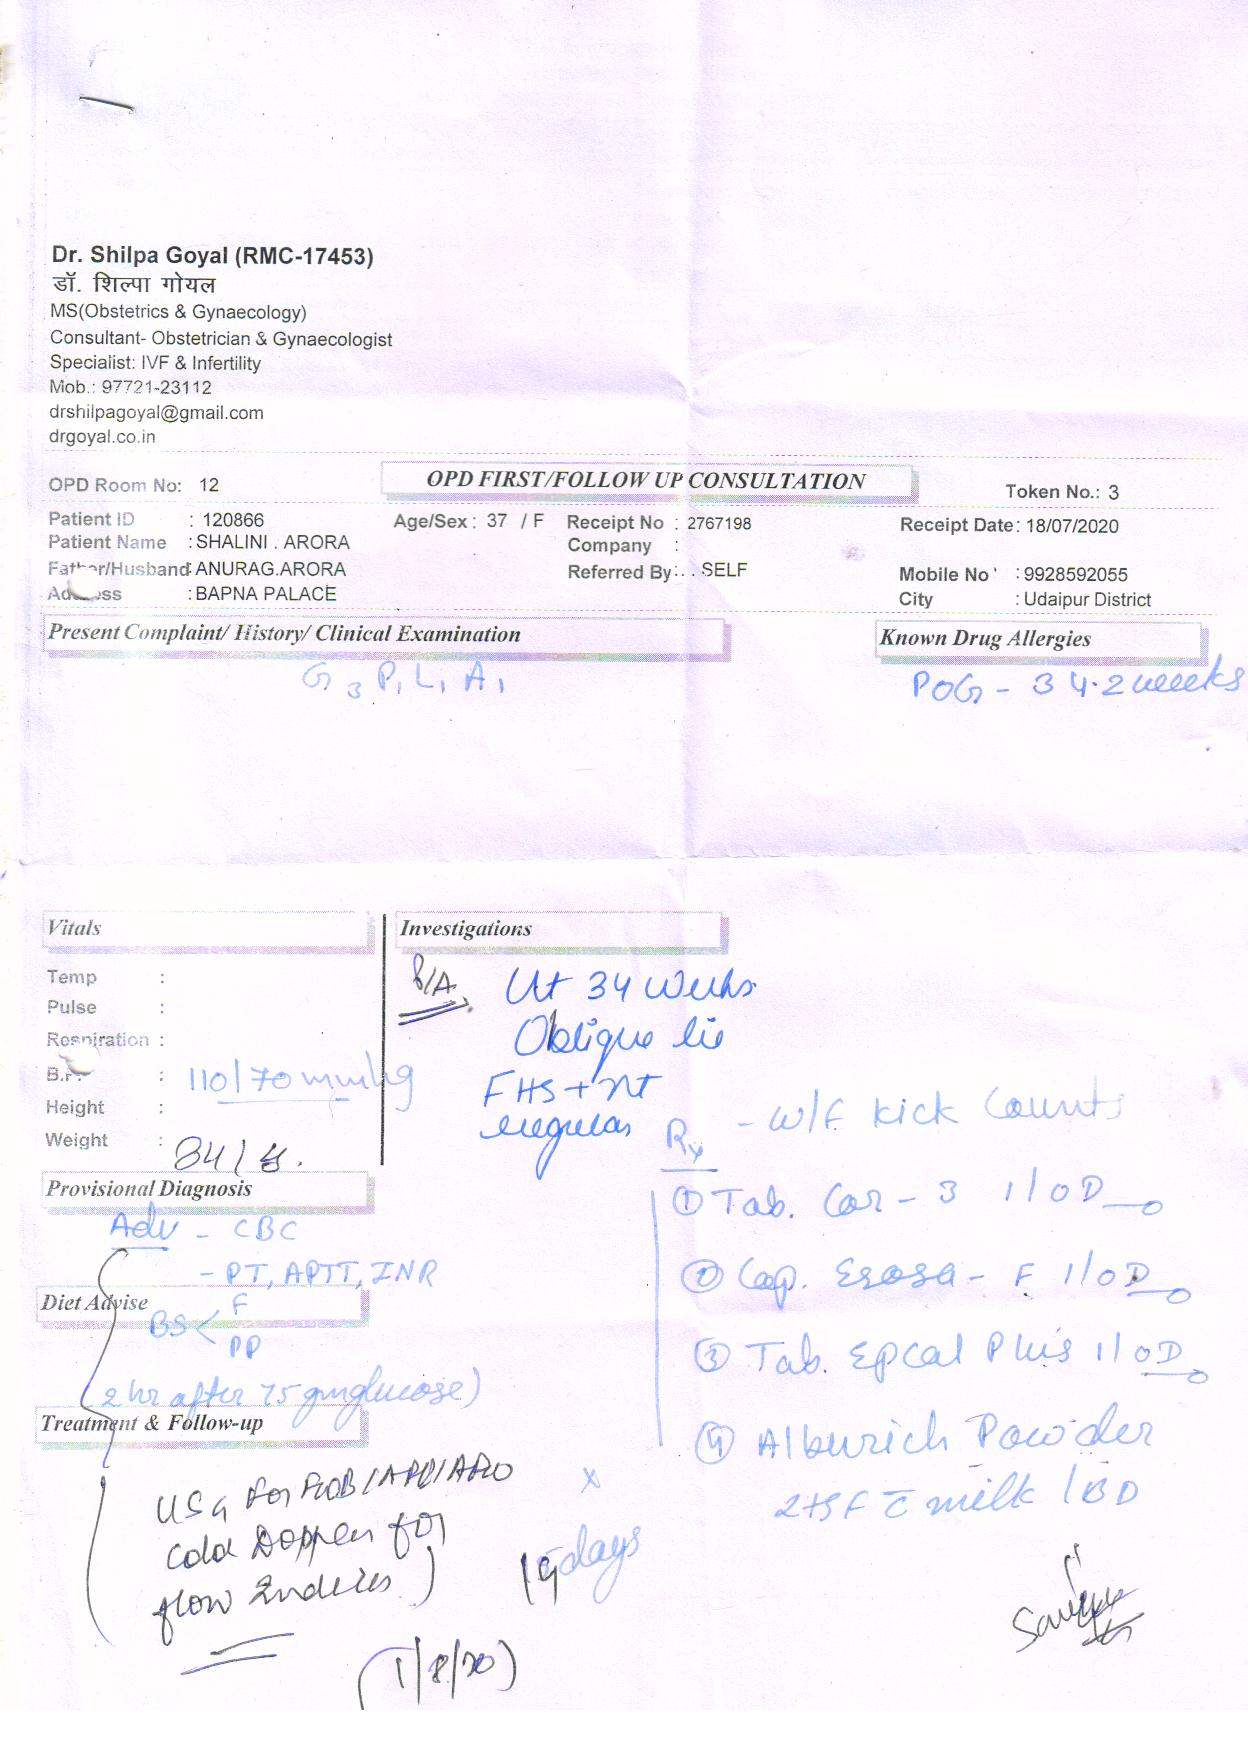 Dr. Shilpa Goyal (RMC-17453)
डॉ. शिल्पा गोयल
MS(Obstetrics & Gynaecology)
Consultant- Obstetrician & Gynaecologist
Specialist: IVF & Infertility
Mob.: 97721-23112
drshilpagoyal@gmail.com
drgoyal.co.in
OPD Room No: 12
OPD FIRST/FOLLOW UP CONSULTATION
Token No.: 3
Patient ID : 120866 Age/Sex : 37 / F Receipt No : 2767198 Receipt Date: 18/07/2020
Patient Name : SHALINI . ARORA Company :
Father/Husband: ANURAG.ARORA Referred By:. . SELF Mobile No : 9928592055
Address : BAPNA PALACE City : Udaipur District
Present Complaint/ History/ Clinical Examination
Known Drug Allergies
G3 P1 L1 A1
POG - 34.2 weeks
Vitals
Temp :
Pulse :
Respiration :
B.P. : 110/70 mmhg
Height :
Weight :
Investigations
P/A
Ut 34 weeks
Oblique lie
FHS + nt
regular
Provisional Diagnosis
Adv - CBC
- PT, APTT, INR
Diet Advise
BS < F
PP
2 hr after 75 gm glucose)
Treatment & Follow-up
USG For
Color Doppler for
flow Indices)
(1/8/20)
Rx - w/f kick counts
① Tab. Cor - 3 1/OD
② Cap. Esosa - F 1/OD
③ Tab. Epcal Plus 1/OD
④ Alburich Powder
2tsf c̄ milk /BD
x
days